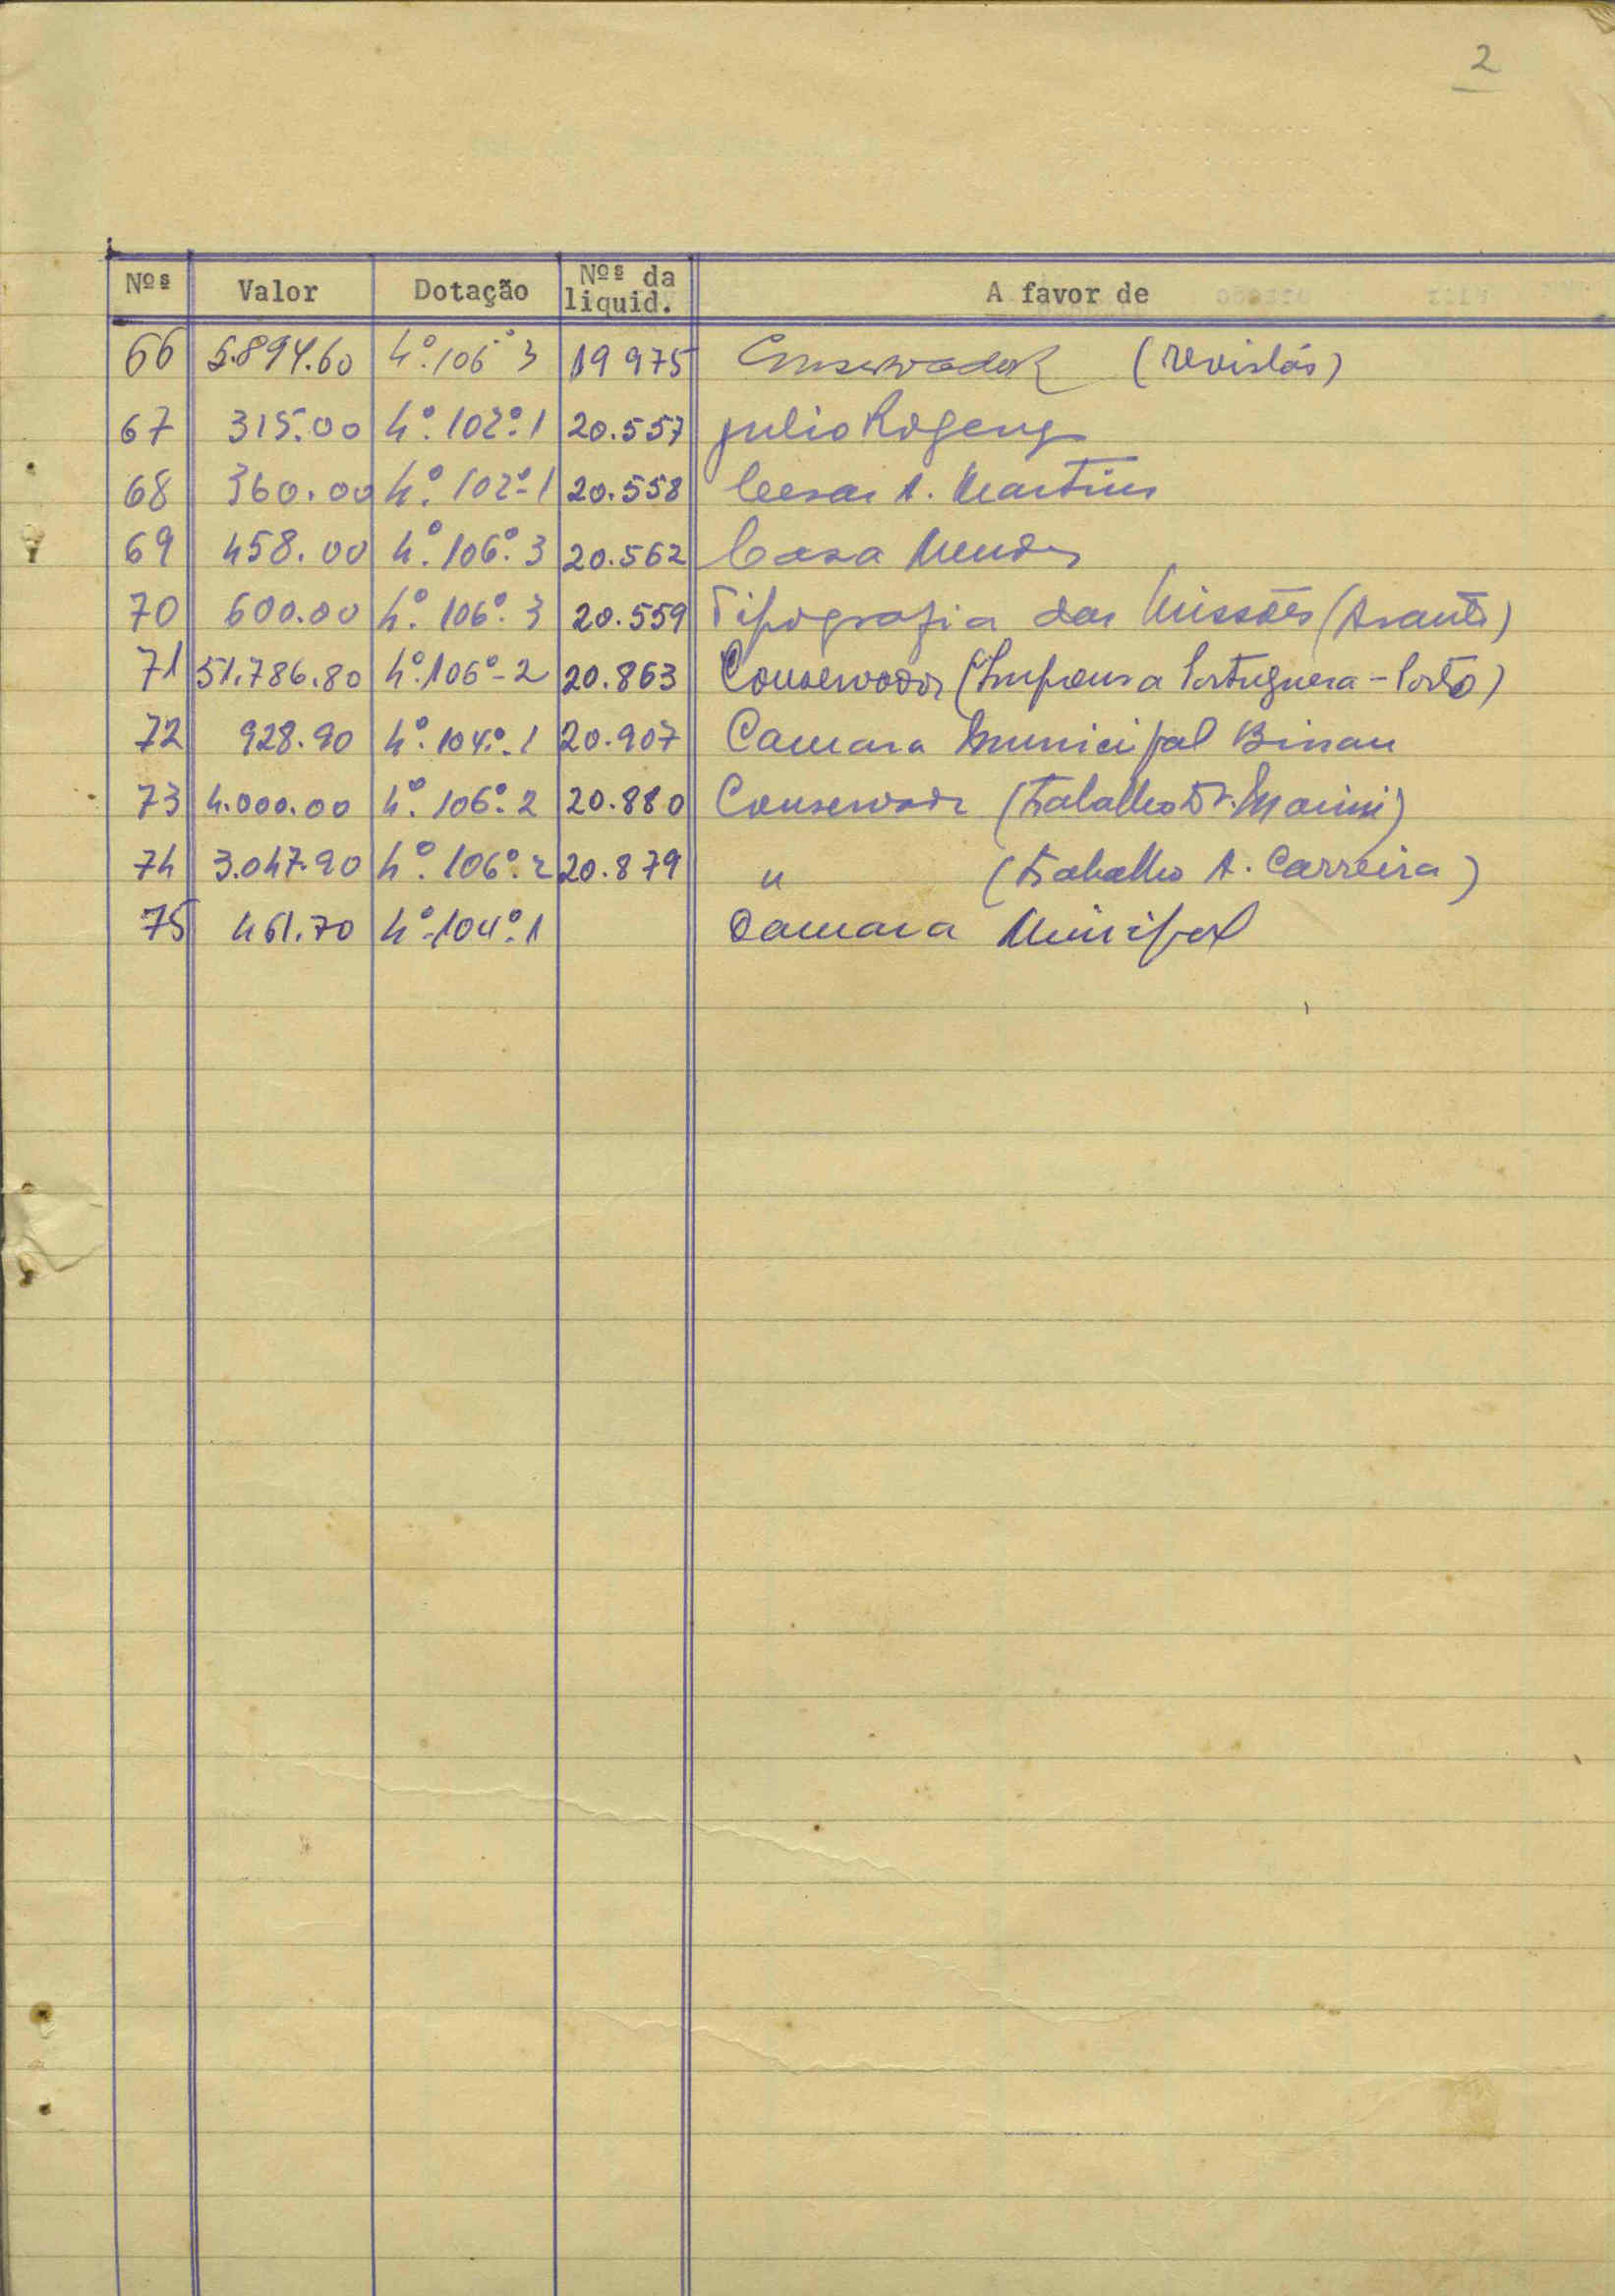 2
Nºs Valor Dotação Nºs da liquid. A favor de
66 5.894.60 4º.106º 3 19 975 Conservador (revistas)
67 315.00 4º.102º.1 20.557 Julio
68 360.00 4º.102º-1 20.558 Cesar A. Martins
69 458.00 4º.106º.3 20.562 Casa Mendes
70 600.00 4º.106º.3 20.559 Tipografia das Missões (Arauto)
71 51.786.80 4º.106º-2 20.863 Conservador (Imprensa Portuguesa - Porto)
72 928.90 4º.104º.1 20.907 Camara Municipal Bissau
73 4.000.00 4º.106º.2 20.880 Conservador (trabalho Dr.
74 3.047.90 4º.106º.2 20.879 " (trabalho A. Carreira)
75 461.70 4º.104º.1 Camara Municipal